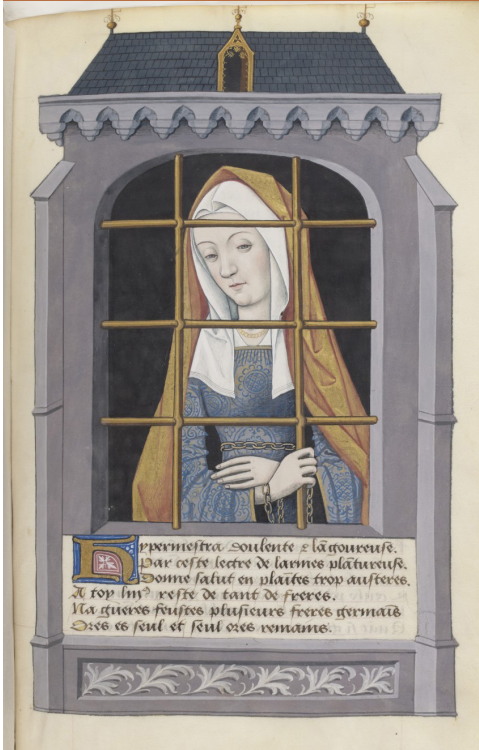 Hypermestra doulente & lāgoureuse.
Par ceste lectre de larmes plātureuse.
Donne salut en plaītes trop austeres.
A toy linꝰ reste de tant de freres.
Na gueres feustes plusieurs freres germaīs
Ores es seul et seul ores remains.